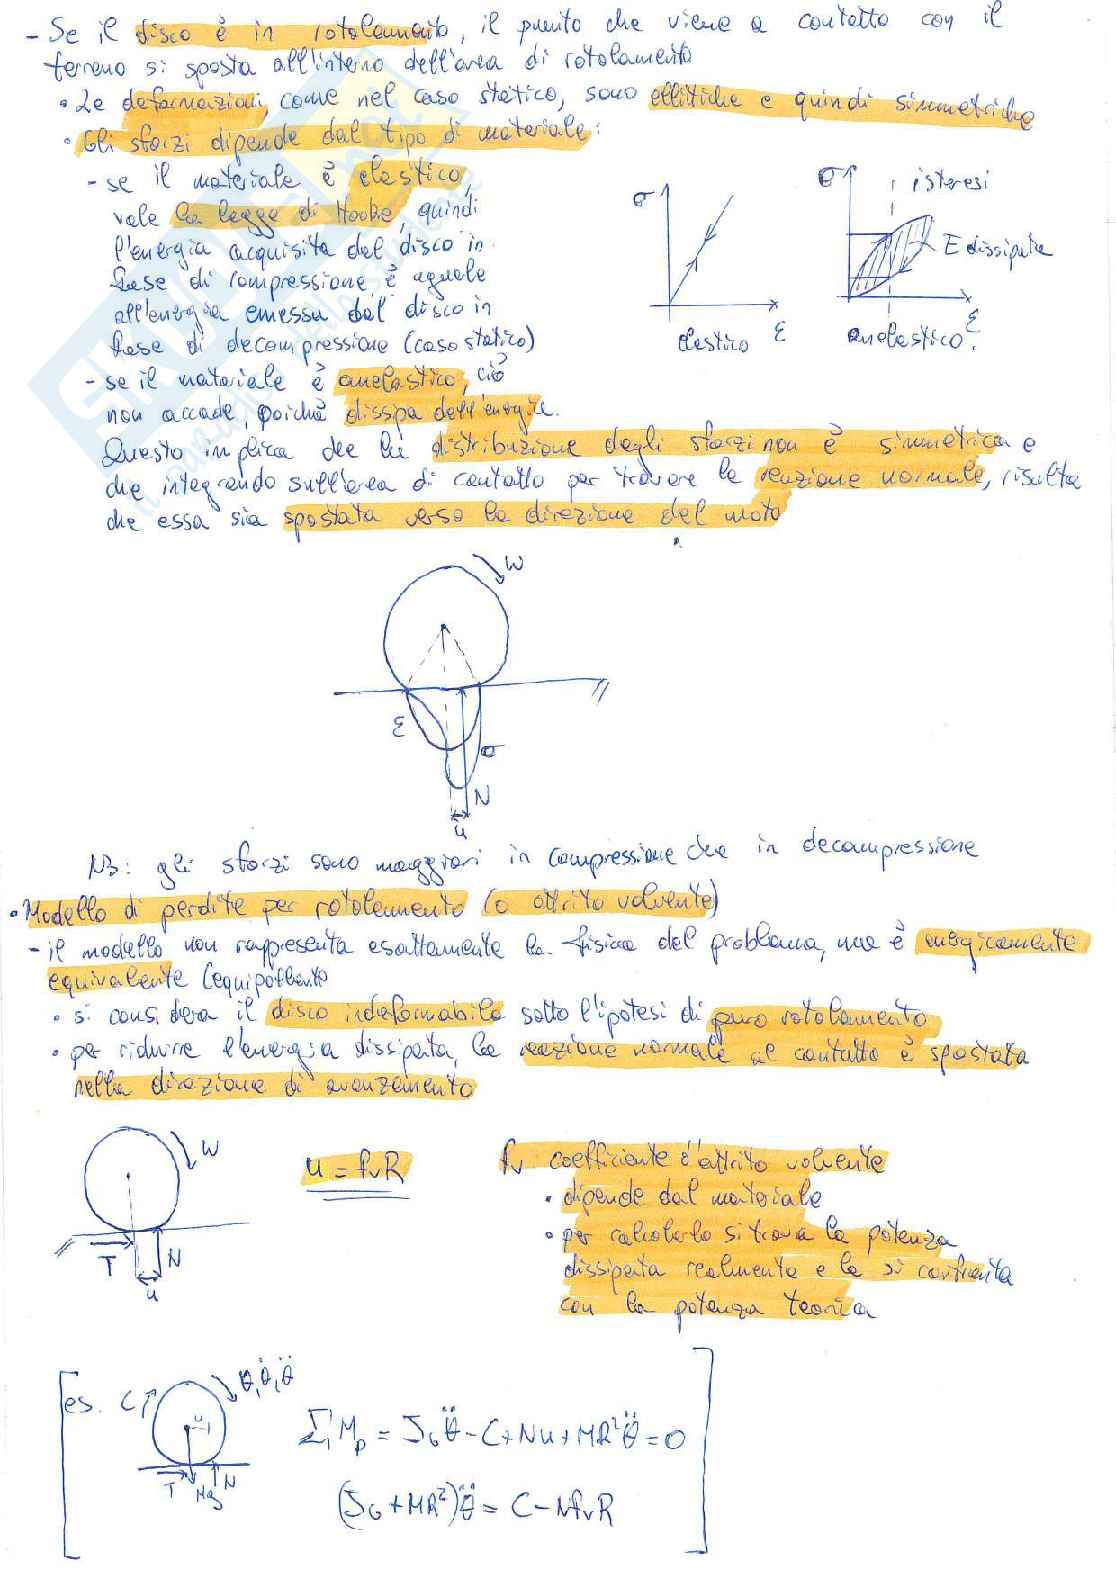 - Se il disco è in rotolamento, il punto che viene a contatto con il
terreno si sposta all'interno dell'area di rotolamento
• Le deformazioni, come nel caso statico, sono ellittiche e quindi simmetriche
• Gli sforzi dipende dal tipo di materiale:
- se il materiale è elastico,
vale la legge di Hooke, quindi
l'energia acquisita dal disco in
fase di compressione, è uguale
all'energia emessa dal disco in
fase di decompressione (caso statico)
σ
ε
elastico
σ
isteresi
E dissipata
ε
anelastico
- se il materiale è anelastico, ciò
non accade, poichè dissipa dell'energia.
Questo implica che la distribuzione degli sforzi non è simmetrica e
che integrando sull'area di contatto per trovare la reazione normale, risulta
che essa sia spostata verso la direzione del moto
ω
ε
σ
N
u
NB: gli sforzi sono maggiori in compressione che in decompressione
• Modello di perdite per rotolamento (o attrito volvente)
- il modello non rappresenta esattamente la fisica del problema, ma è energicamente
equivalente (equipollente
• si considera il disco indeformabile sotto l'ipotesi di puro rotolamento
• per ridurre l'energia dissipata, la reazione normale al contatto è spostata
nella direzione di avanzamento
ω
T
N
u
u = fvR
fv coefficiente d'attrito volvente
• dipende dal materiale
• per calcolarlo si trova la potenza
dissipata realmente e la si confronta
con la potenza teorica
es. C
θ, θ̇, θ̈
u
T Mg N
ΣMp = JG θ̈ - C + Nu + MR²θ̈ = 0
(JG + MR²)θ̈ = C - NfvR